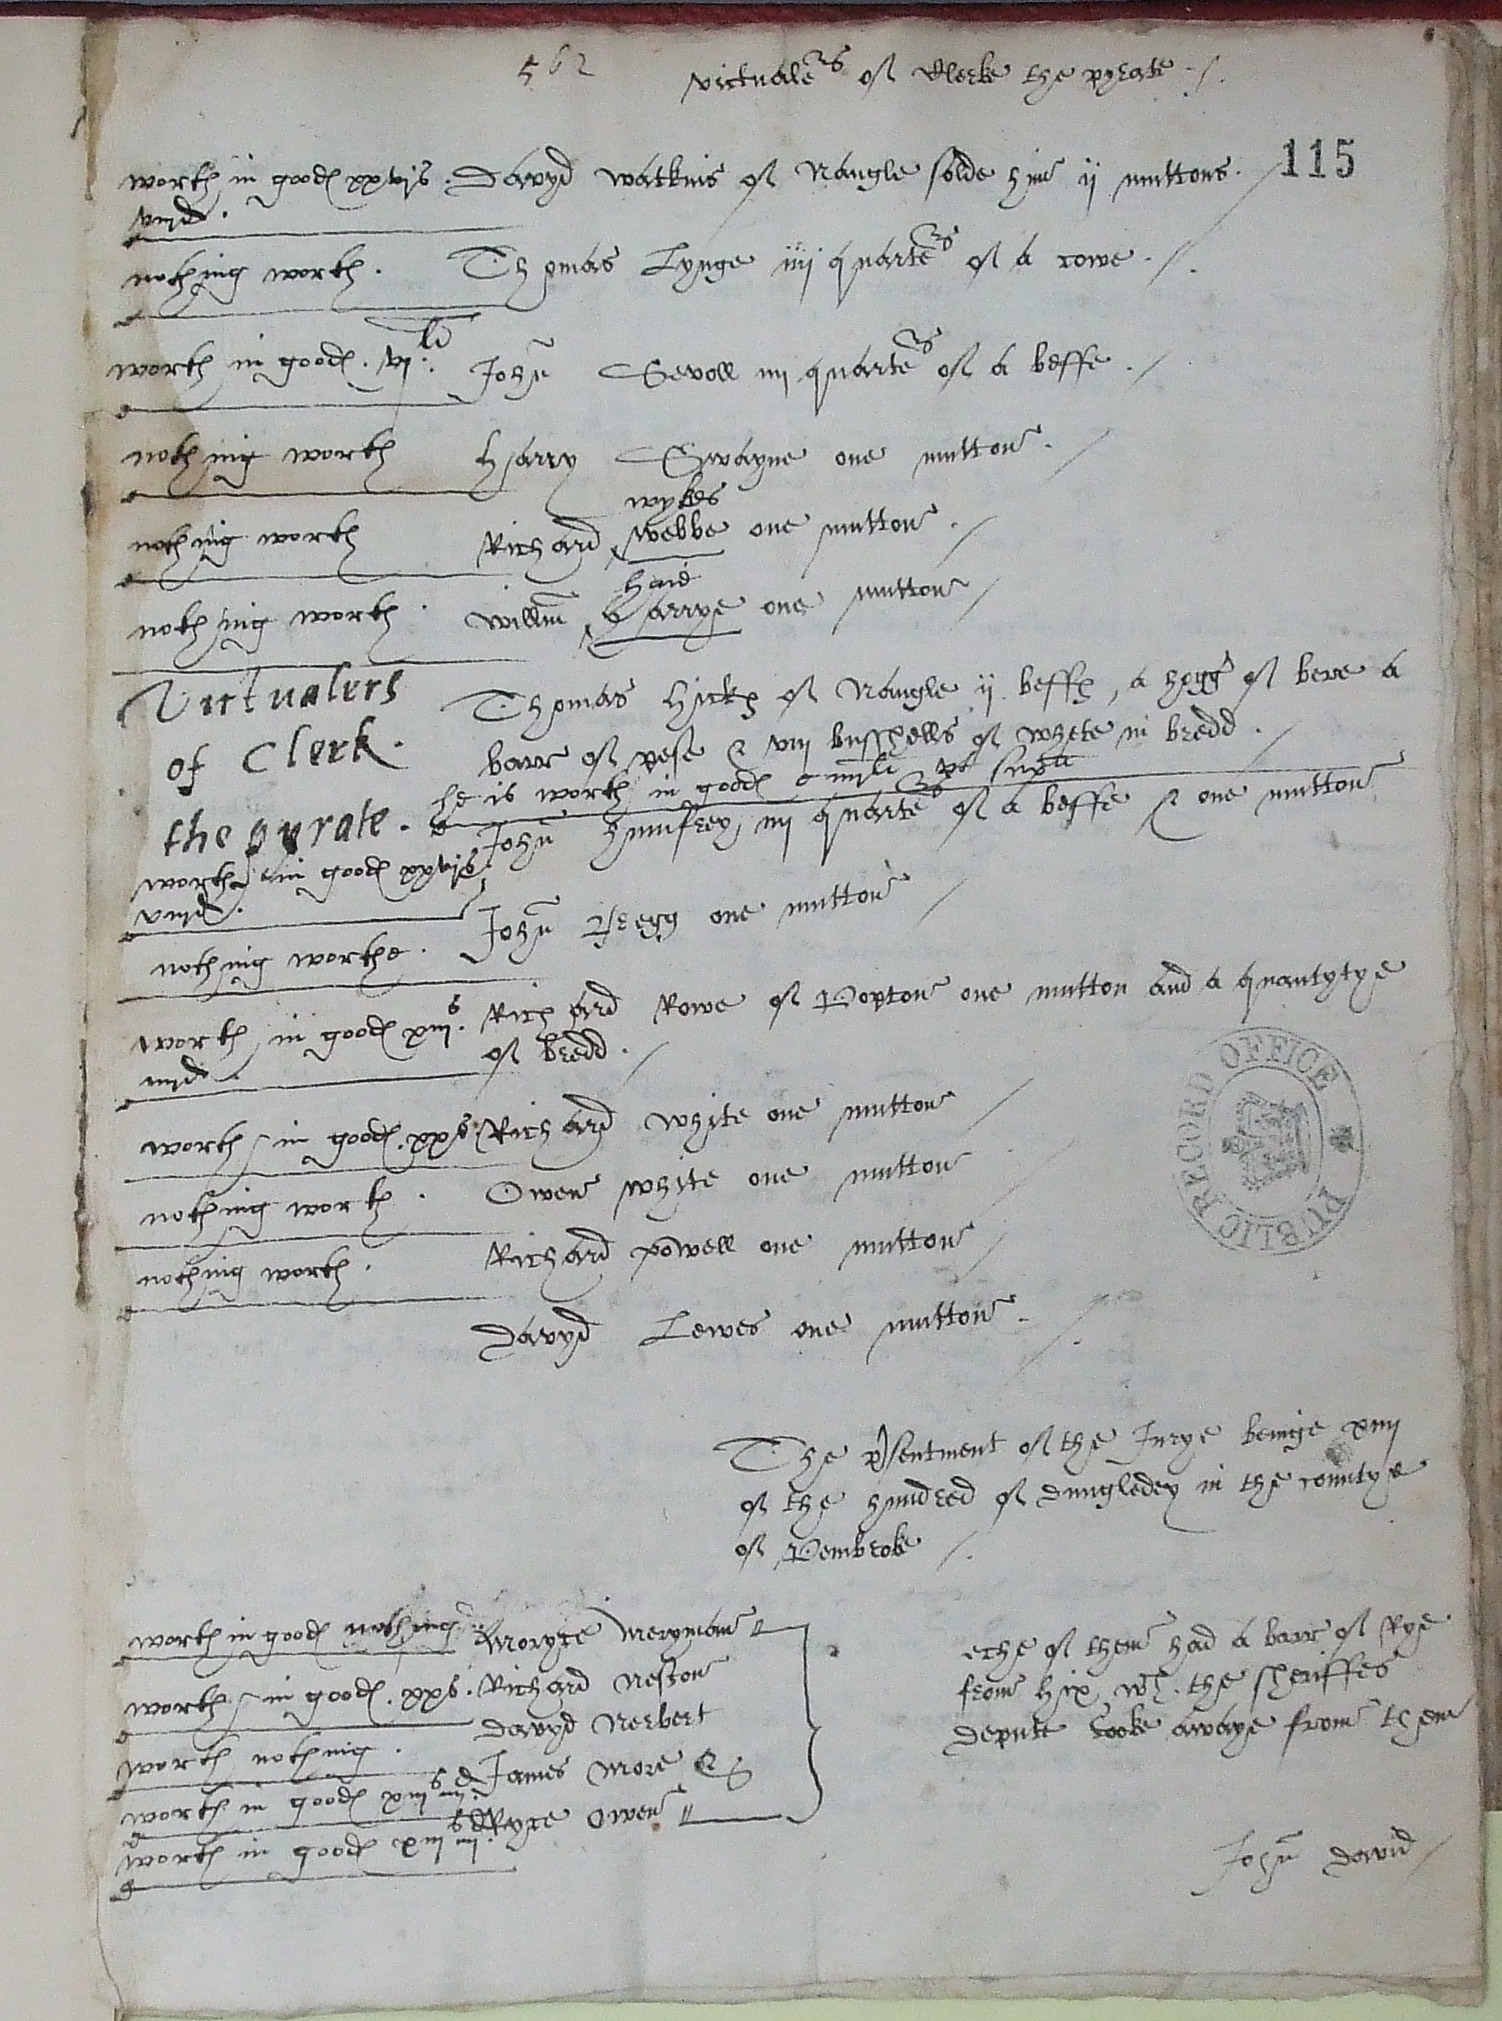 562 victualers of Clerke the pyrate
115
worth in goodes xxvjs viijd. Davyd Watkins of Nangle solde hym ij muttons.
nothing worth. Thomas Lynge iiij quarters of a cowe.
worth in goodes. vj li John Sevoll iiij quarters of a beffe.
nothing worth Harry Swayne one mutton.
wykes
nothing worth Richard Webbe one mutton.
haid
nothing worth. Willm Harrye one mutton
Victualers
of Clerk.
the pyrate.
Thomas Hickes of Nangle ij beffes, a hogg of bere a
barr of pese & viij busshells of whete in bredd.
he is worth in goodes
John Humfrey, iiij quarters of a beffe & one mutton
worth in goodes xxvjs
viijd.
nothing worthe. John Gregg one mutton
worth in goodes xiijs. Richard Rowe of Popton one mutton and a quantytye
iiijd. of bredd.
worth in goodes. xxs. Richard White one mutton
nothing worth. Owen White one mutton
nothing worth. Richard Powell one mutton
Davyd Lewes one mutton.
The presentment of the Jurye beinge xiiij
of the hundred of Dungledey in the countye
of Pembroke
worth in goodes nothing Moryce Meryman
worth in goodes. xxs. Richard Neston
worth nothing. Davyd Nerbert
worth in goodes xiijs iiijd James More &
worth in goodes xiijs iiijd. Ryce Owen
eche of them had a barr of Rye
from hix wch. the sheriffes
depute tooke awaye from them
John David
PUBLIC RECORD OFFICE